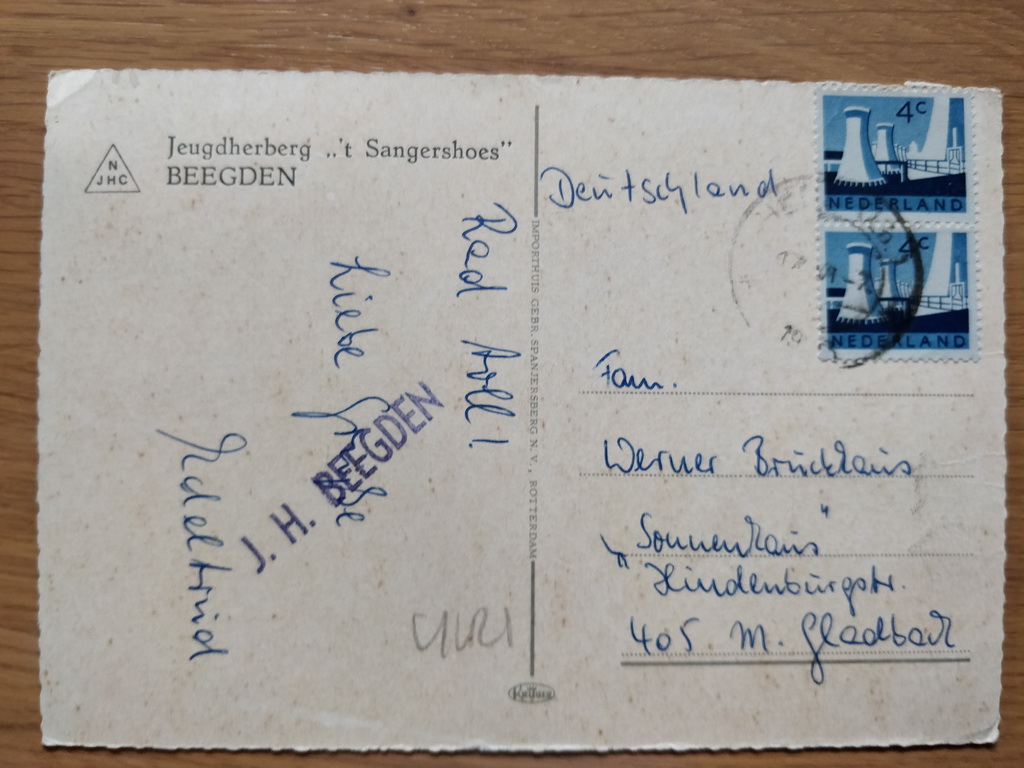 N
N
JHC
Jeugdherberg „'t Sangershoes"
BEEGDEN
Rad toll!
Liebe Grüße
Edeltrud
J. H. BEEGDEN
IMPORTHUIS GEBR. SPANJERSBERG N.V., ROTTERDAM
4c
NEDERLAND
4c
NEDERLAND
Deutschland
Fam.
Werner Brückhaus
„Sonnenhaus"
Hindenburgstr.
405 M. Gladbach